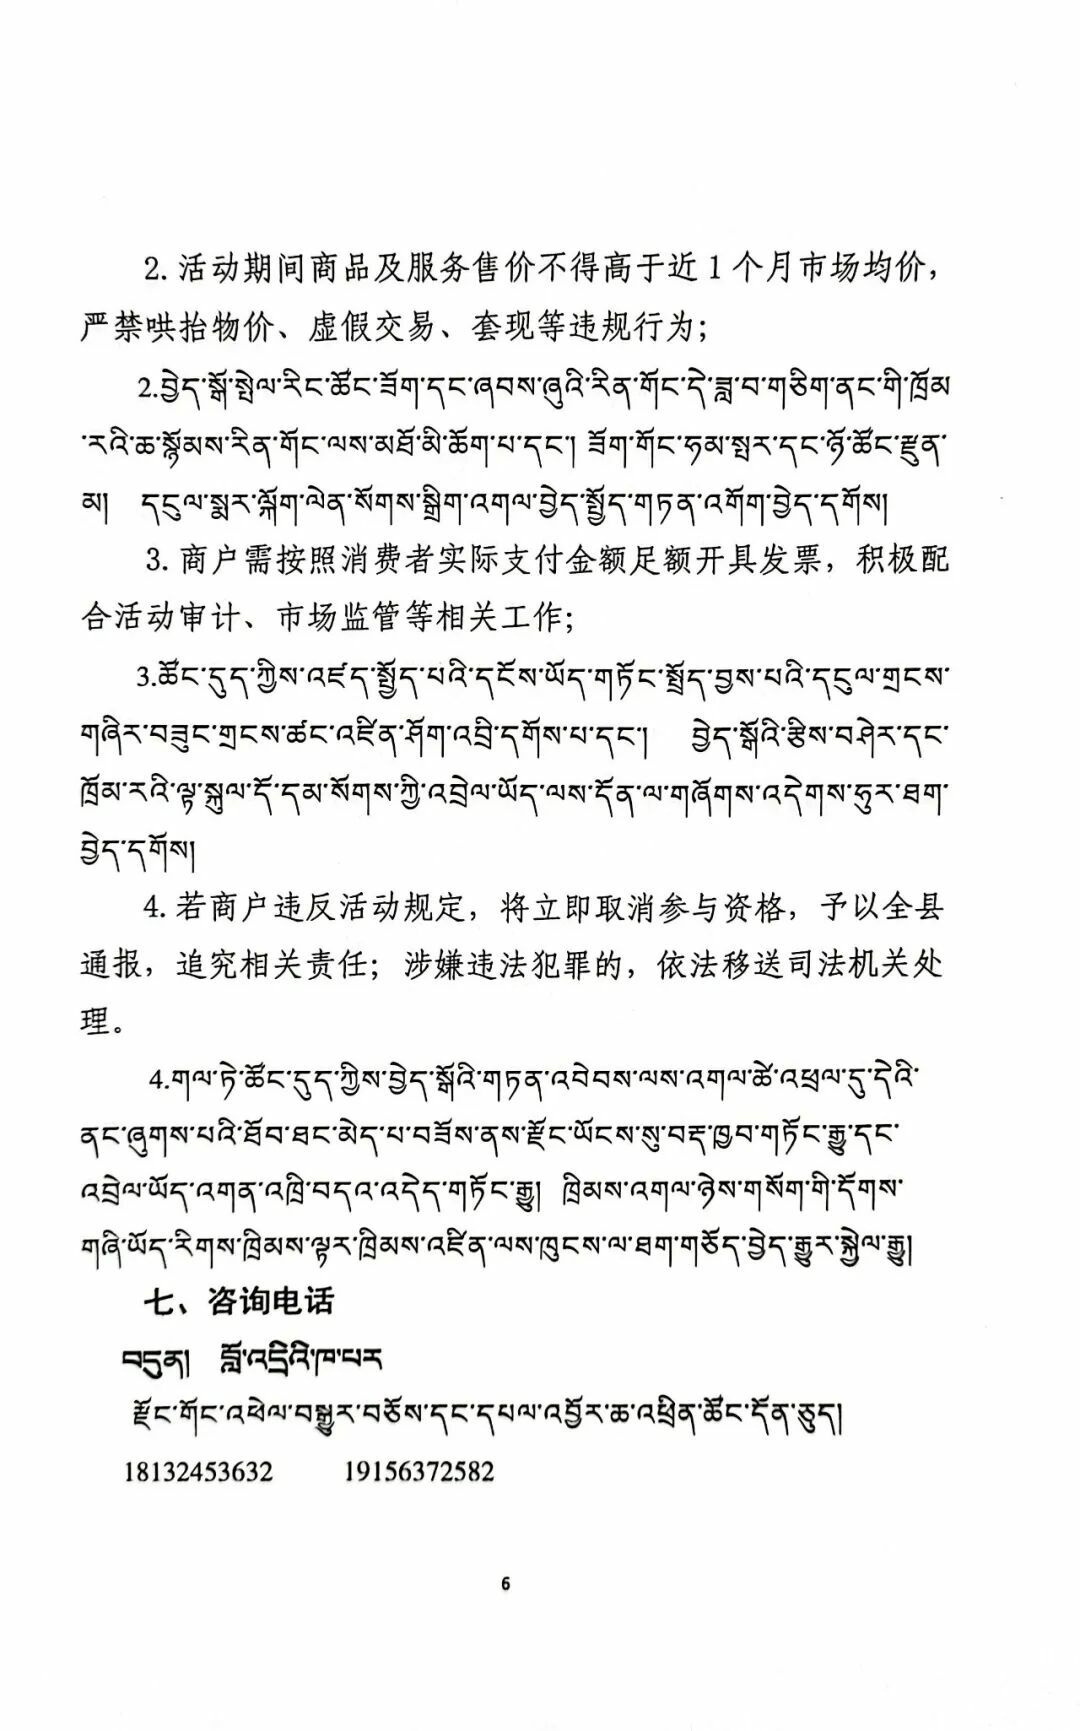 2. 活动期间商品及服务售价不得高于近 1 个月市场均价，
严禁哄抬物价、虚假交易、套现等违规行为；
2.བྱེད་སྒོ་སྤེལ་རིང་ཚོང་ཟོག་དང་ཞབས་ཞུའི་རིན་གོང་དེ་ཟླ་བ་གཅིག་ནང་གི་ཁྲོམ
་རའི་ཆ་སྙོམས་རིན་གོང་ལས་མཐོ་མི་ཆོག་པ་དང་། ཟོག་གོང་ཧམ་སྤར་དང་ཉོ་ཚོང་རྫུན་
མ། དངུལ་སྨར་ལྐོག་ལེན་སོགས་སྒྲིག་འགལ་བྱེད་སྤྱོད་གཏན་འགོག་བྱེད་དགོས།
3. 商户需按照消费者实际支付金额足额开具发票，积极配
合活动审计、市场监管等相关工作；
3.ཚོང་དུད་ཀྱིས་འཛད་སྤྱོད་པའི་དངོས་ཡོད་གཏོང་སྤྲོད་བྱས་པའི་དངུལ་གྲངས་
གཞིར་བཟུང་གྲངས་ཚང་འཛིན་ཤོག་འབྲི་དགོས་པ་དང་། བྱེད་སྒོའི་རྩིས་བཤེར་དང་
ཁྲོམ་རའི་ལྟ་སྐུལ་དོ་དམ་སོགས་ཀྱི་འབྲེལ་ཡོད་ལས་དོན་ལ་གཞོགས་འདེགས་ཧུར་ཐག་
བྱེད་དགོས།
4. 若商户违反活动规定，将立即取消参与资格，予以全县
通报，追究相关责任；涉嫌违法犯罪的，依法移送司法机关处
理。
4.གལ་ཏེ་ཚོང་དུད་ཀྱིས་བྱེད་སྒོའི་གཏན་འབེབས་ལས་འགལ་ཚེ་འཕྲལ་དུ་དེའི་
ནང་ཞུགས་པའི་ཐོབ་ཐང་མེད་པ་བཟོས་ནས་རྫོང་ཡོངས་སུ་བརྡ་ཁྱབ་གཏོང་རྒྱུ་དང་
འབྲེལ་ཡོད་འགན་འཁྲི་བདའ་འདེད་གཏོང་རྒྱུ། ཁྲིམས་འགལ་ཉེས་གསོག་གི་དོགས་
གཞི་ཡོད་རིགས་ཁྲིམས་ལྟར་ཁྲིམས་འཛིན་ལས་ཁུངས་ལ་ཐག་གཅོད་བྱེད་རྒྱུར་སྐྱེལ་རྒྱུ།
七、咨询电话
བདུན། བློ་འདྲིའི་ཁ་པར
རྫོང་གོང་འཕེལ་བསྒྱུར་བཅོས་དང་དཔལ་འབྱོར་ཆ་འཕྲིན་ཚོང་དོན་ཅུད།
18132453632 19156372582
6